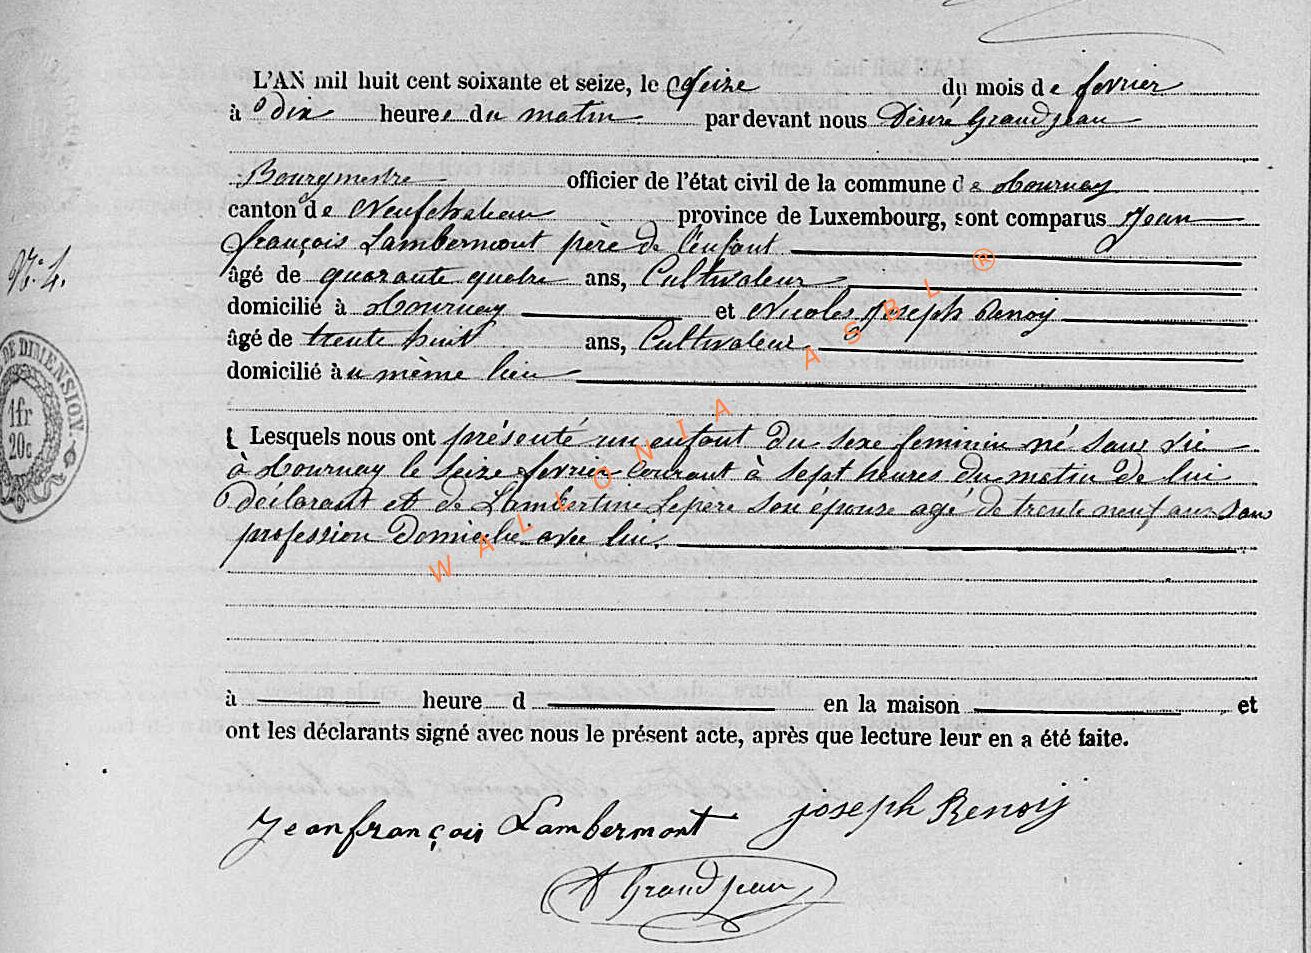 L'AN mil huit cent soixante et seize, le Seize du mois de fevrier
à dix heures du matin par devant nous Désiré Grandjean
Bourgmestre officier de l'état civil de la commune de Tournay
canton de Neufchateau province de Luxembourg, sont comparus Jean
françois Lambermont père de l'enfant
âgé de quarante quatre ans, Cultivateur
domicilié à Tournay et Nicolas Joseph Renoy
N° 4.
âgé de trente huit ans, Cultivateur
domicilié au même lieu
DE DIMENSION.
1fr
20c
Lesquels nous ont présenté un enfant du sexe feminin né sans vie
à Tournay le seize fevrier courant à sept heures du matin de lui
déclarant et de Lambertine Lepère son épouse agé de trente neuf ans sans
profession domicilié avec lui.
WALLONIA ASBL ®
à heure d en la maison et
ont les déclarants signé avec nous le présent acte, après que lecture leur en a été faite.
Jean françois Lambermont joseph Renoy
D Grandjean